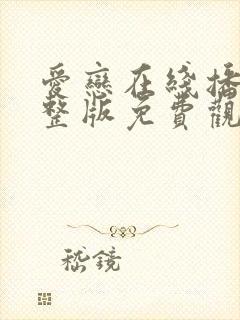 愛戀在綫播
整版免費觀
嵇鏡